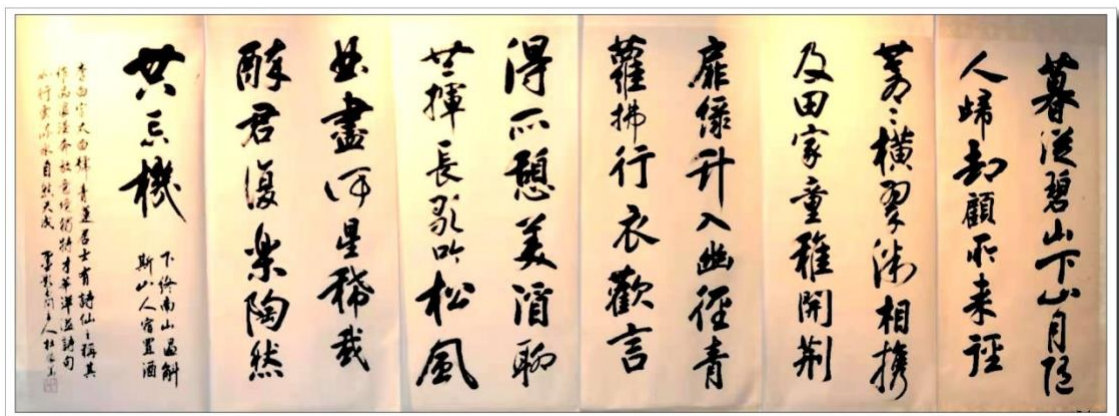 暮從碧山下山月隨
人歸却顧所来徑
蒼〻橫翠微相携
及田家童稚開荆
扉綠竹入幽徑青
蘿拂行衣歡言
得所憩美酒聊
共揮長歌吟松風
曲盡河星稀我
醉君復楽陶然
共忘機
下終南山過斛
斯山人宿置酒
李白字太白號青蓮居士有詩仙之稱其
作品浪漫奔放意境獨特才華洋溢詩句
如行雲流水自然天成